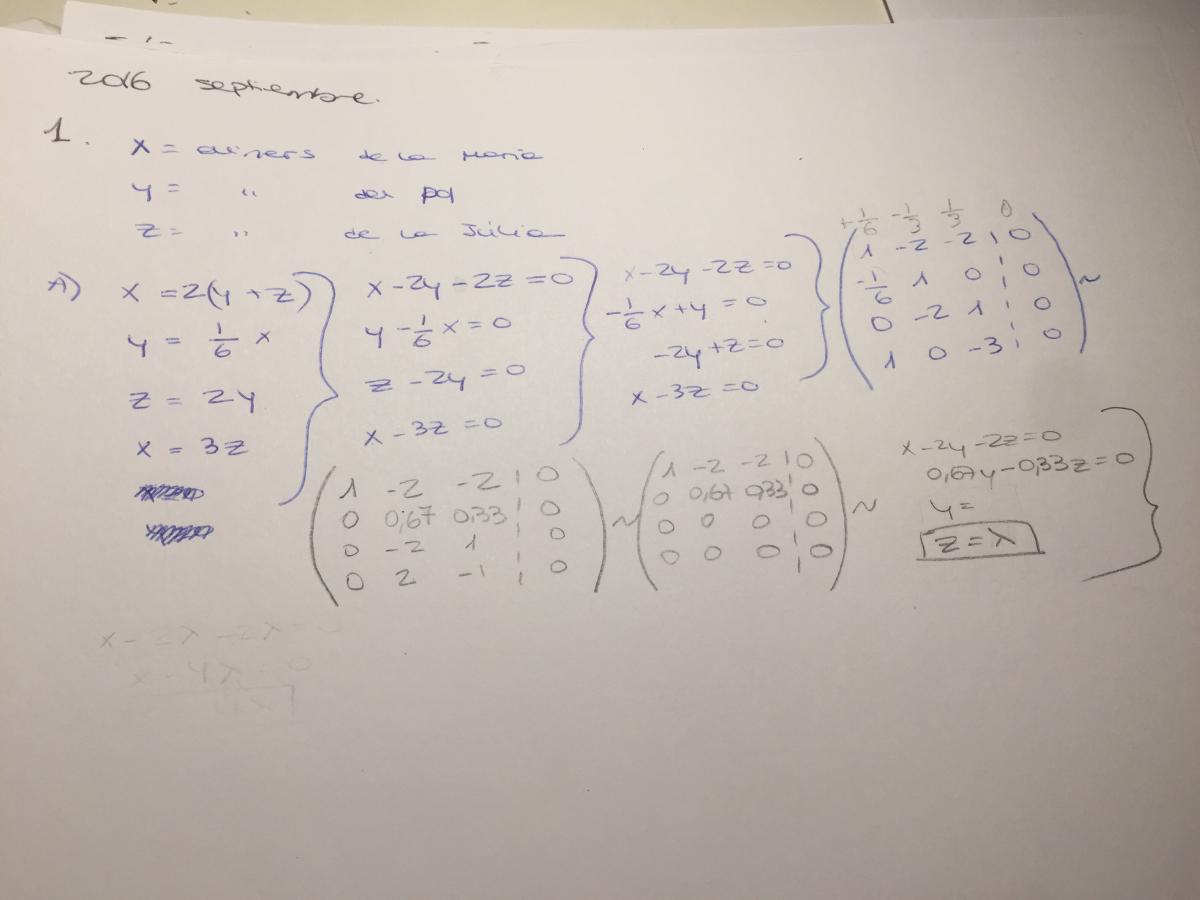 2016 septiembre.
1.
x = diners de la Maria
y = " del pol
z = " de la Júlia
A) x = 2(y + z)
y = 1/6 x
z = 2y
x = 3z
x - 2y - 2z = 0
y - 1/6 x = 0
z - 2y = 0
x - 3z = 0
x - 2y - 2z = 0
-1/6 x + y = 0
-2y + z = 0
x - 3z = 0
+1/6 -1/3 1/3 0
1 -2 -2 | 0
-1/6 1 0 | 0
0 -2 1 | 0
1 0 -3 | 0
~
1 -2 -2 | 0
0 0,67 0,33 | 0
0 -2 1 | 0
0 2 -1 | 0
~
1 -2 -2 | 0
0 0,67 0,33 | 0
0 0 0 | 0
0 0 0 | 0
~
x - 2y - 2z = 0
0,67y - 0,33z = 0
y =
z = λ
x - 2λ - 2λ = 0
x - 4λ = 0